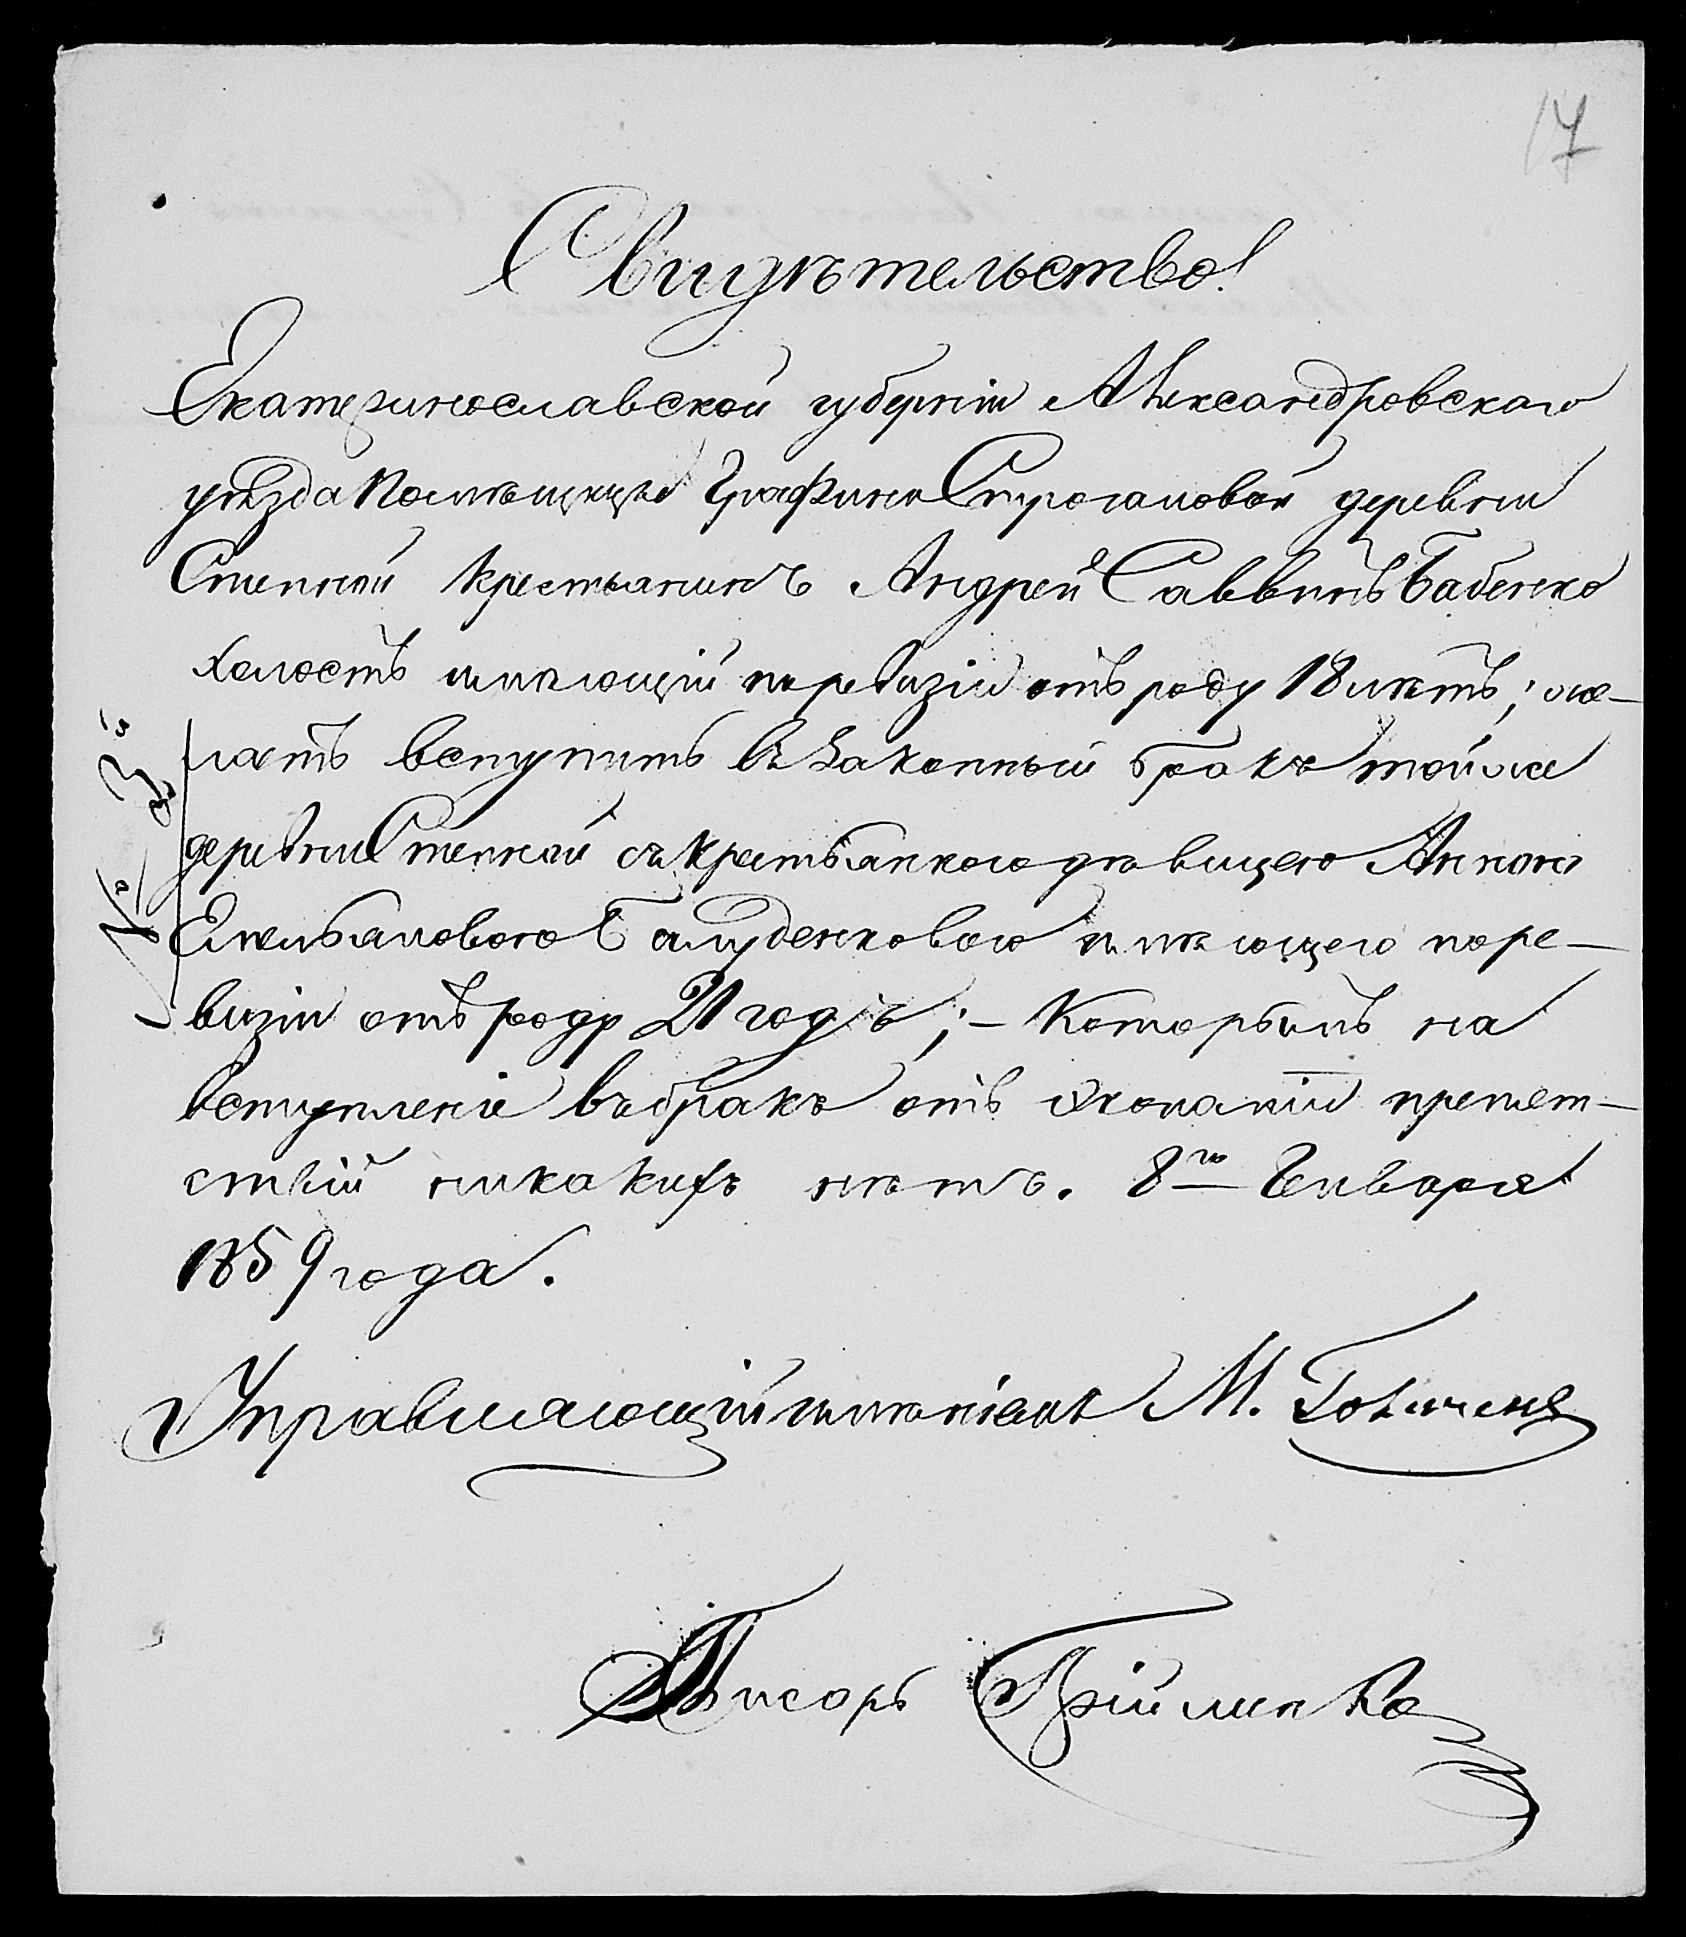 17
Свидѣтельство!
Екатеринославской губерніи Александровскаго
уѣзда Помѣщицы Графини Строгановой деревни
Степной крестьянинъ Андрей Саввинъ Бабенко
холостъ имѣющій поревизіи отъ роду 18 лѣтъ; же-
лаетъ вступить въ законный бракъ той же
деревни Степной съ крестьянкою дѣвицею Анною
Емельяновою имѣющею поре-
визіи отъ роду 21 годъ; – Которымъ на
вступленіе въ бракъ отъ экономіи препят-
ствій никакихъ нѣтъ. 8го Генваря
1859 года.
№ 3й
Управляющій имѣніемъ М.
Писарь